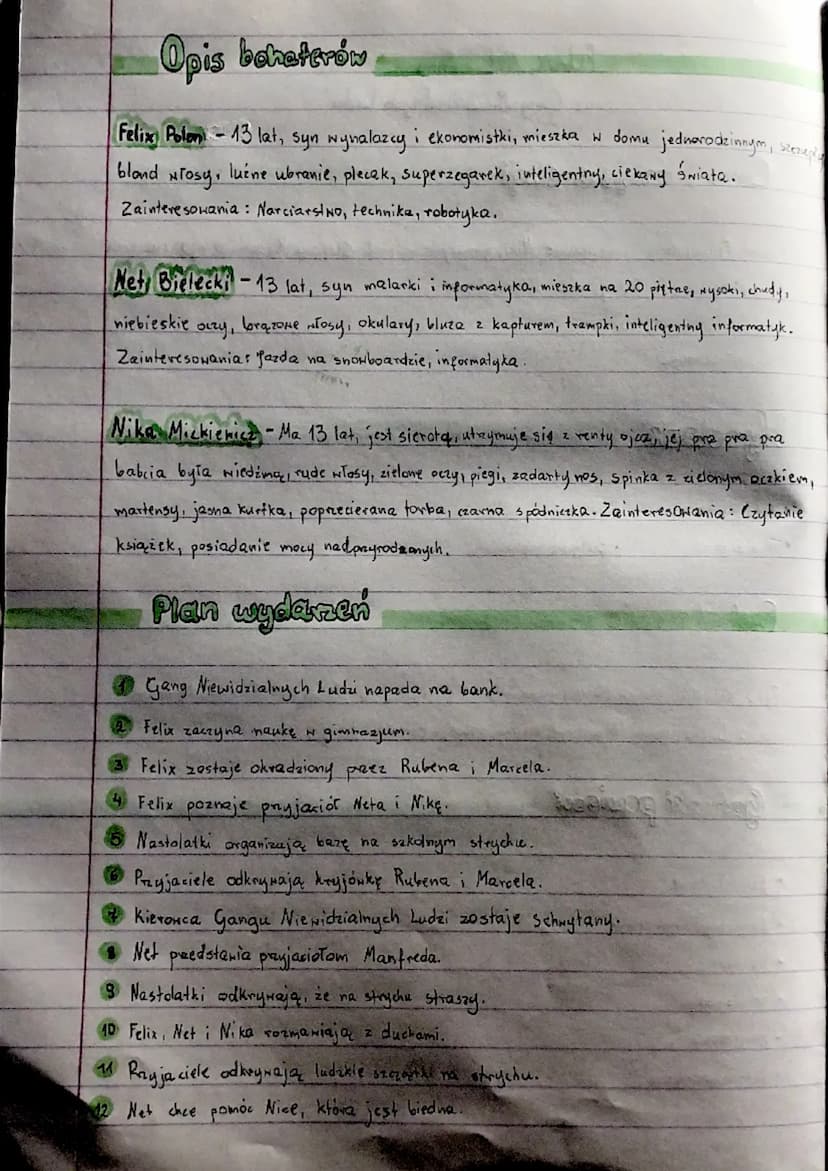 Opis bohaterów
Felix Polon - 13 lat, syn wynalazcy i ekonomistki, mieszka w domu jednorodzinnym,
blond włosy, luźne ubranie, plecak, superzegarek, inteligentny, ciekawy świata.
Zainteresowania: Narciarstwo, technika, robotyka.
Net Bielecki - 13 lat, syn malarki i informatyka, mieszka na 20 piętrze, wysoki, chudy,
niebieskie oczy, brązowe włosy, okulary, bluza z kapturem, trampki, inteligentny informatyk.
Zainteresowania: Jazda na snowboardzie, informatyka.
Nika Mickiewicz - Ma 13 lat, jest sierotą, utrzymuje się z renty ojca, jej pra pra pra
babcia była wiedźmą, rude włosy, zielone oczy, piegi, zadarty nos, spinka z zielonym oczkiem,
martensy, jasna kurtka, poprzecierana torba, czarna spódniczka. Zainteresowania: Czytanie
książek, posiadanie mocy nadprzyrodzonych.
Plan wydarzeń
1 Gang Niewidzialnych Ludzi napada na bank.
2 Felix zaczyna naukę w gimnazjum.
3 Felix zostaje okradziony przez Rubena i Marcela.
4 Felix poznaje przyjaciół Neta i Nikę.
5 Nastolatki organizują bazę na szkolnym strychu.
6 Przyjaciele odkrywają kryjówkę Rubena i Marcela.
7 Kierowca Gangu Niewidzialnych Ludzi zostaje schwytany.
8 Net przedstawia przyjaciołom Manfreda.
9 Nastolatki odkrywają, że na strychu straszy.
10 Felix, Net i Nika rozmawiają z duchami.
11 Przyjaciele odkrywają ludzkie szczątki na strychu.
12 Net chce pomóc Nice, która jest biedna.